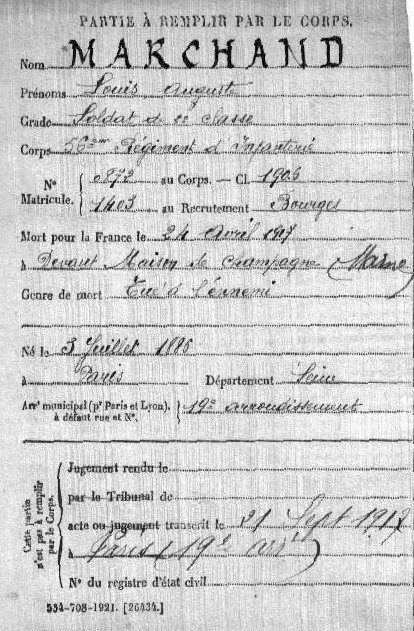 PARTIE À REMPLIR PAR LE CORPS.
Nom MARCHAND
Prénoms Louis Auguste
Grade Soldat de 2e classe
Corps 56eme Régiment d'Infanterie
N° Matricule. 872 au Corps. — Cl. 1906
1403 au Recrutement Bourges
Mort pour la France le 24 Avril 1917
à Devant Maison de Champagne (Marne)
Genre de mort Tué à l'ennemi
Né le 3 Juillet 1886
à Paris Département Seine
Arrt municipal (pr Paris et Lyon), à défaut rue et N°. 19e arrondissement
Cette partie n'est pas à remplir par le Corps.
Jugement rendu le
par le Tribunal de
acte ou jugement transcrit le 21 Sept 1917
à Paris (19e arrt)
N° du registre d'état civil
534-708-1921. [26434.]